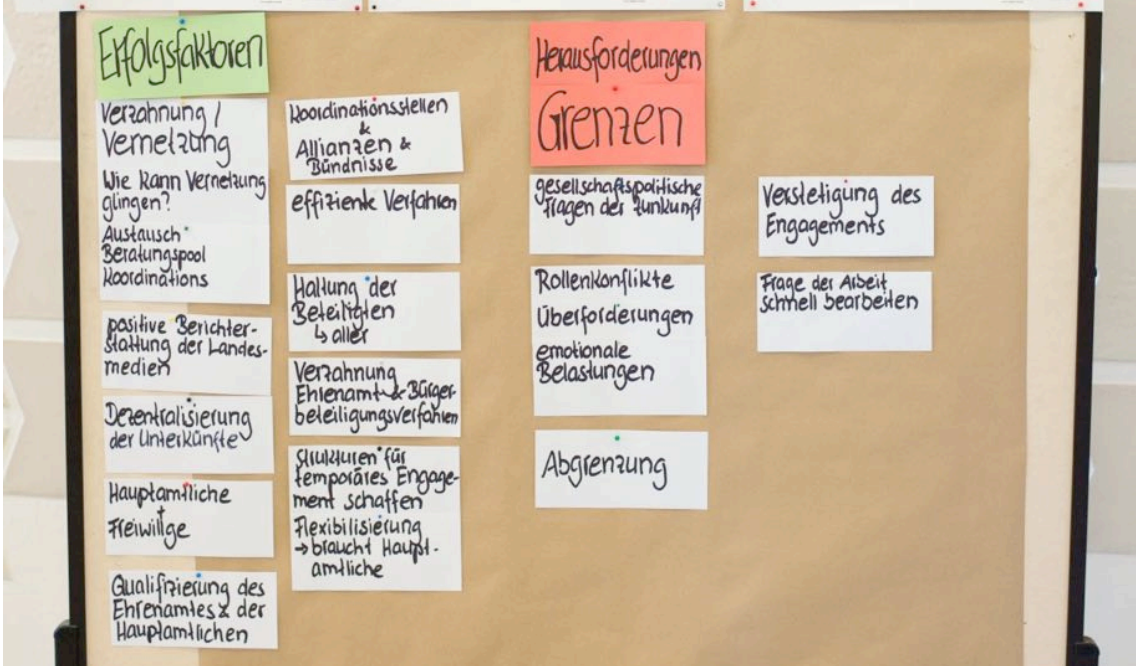 Erfolgsfaktoren
Verzahnung /
Vernetzung
Wie kann Vernetzung
glingen?
Austausch
Beratungspool
Koordinations
positive Berichter-
stattung der Landes-
medien
Dezentralisierung
der Unterkünfte
Hauptamtliche
+
Freiwillge
Qualifizierung des
Ehrenamtes & der
Hauptamtlichen
Koordinationsstellen
&
Allianzen &
Bündnisse
effiziente Verfahren
Haltung der
Beteiligten
↳ aller
Verzahnung
Ehrenamt & Bürger-
beteiligungsverfahren
Strukturen für
temporäres Engage-
ment schaffen
Flexibilisierung
→ braucht Haupt-
amtliche
Herausforderungen
Grenzen
gesellschaftspolitische
Fragen der Zunkunft
Rollenkonflikte
Überforderungen
emotionale
Belastungen
Abgrenzung
Verstetigung des
Engagements
Frage der Arbeit
schnell bearbeiten